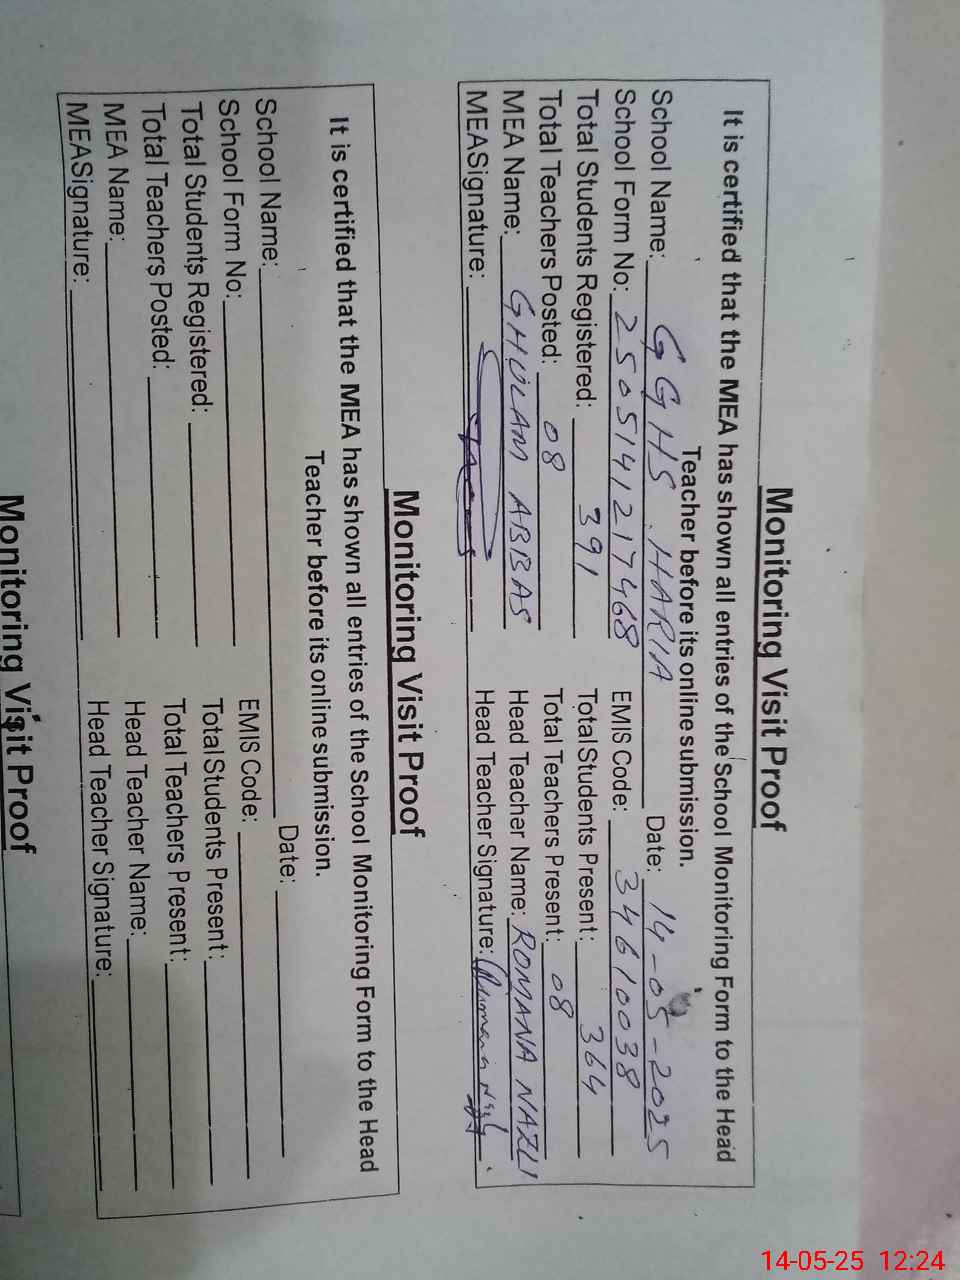 Monitoring Visit Proof
It is certified that the MEA has shown all entries of the School Monitoring Form to the Head
Teacher before its online submission.
School Name: GGHS HARIA Date: 14-05-2025
School Form No: 2505141217468 EMIS Code: 34610038
Total Students Registered: 391 Total Students Present: 364
Total Teachers Posted: 08 Total Teachers Present: 08
MEA Name: GHULAM ABBAS Head Teacher Name: ROMANA NAZLI
MEASignature: Head Teacher Signature:
Monitoring Visit Proof
It is certified that the MEA has shown all entries of the School Monitoring Form to the Head
Teacher before its online submission.
School Name: Date:
School Form No: EMIS Code:
Total Students Registered: Total Students Present:
Total Teachers Posted: Total Teachers Present:
MEA Name: Head Teacher Name:
MEASignature: Head Teacher Signature:
Monitoring Visit Proof
14-05-25 12:24